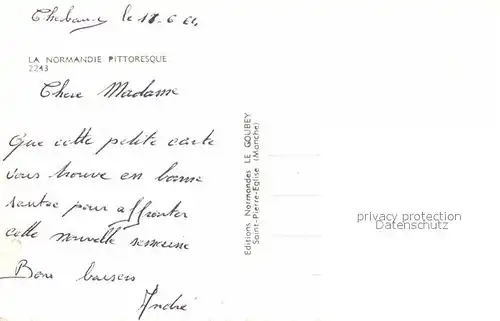 le 18-6 64
LA NORMANDIE PITTORESQUE
2243
Chere Madame
Que cette petite carte
vous trouve en bonne
santée pour affronter
cette nouvelle semaine
Bons baisers
André
Editions Normandes LE GOUBEY
Saint-Pierre-Eglise (Manche)
privacy protection
Datenschutz